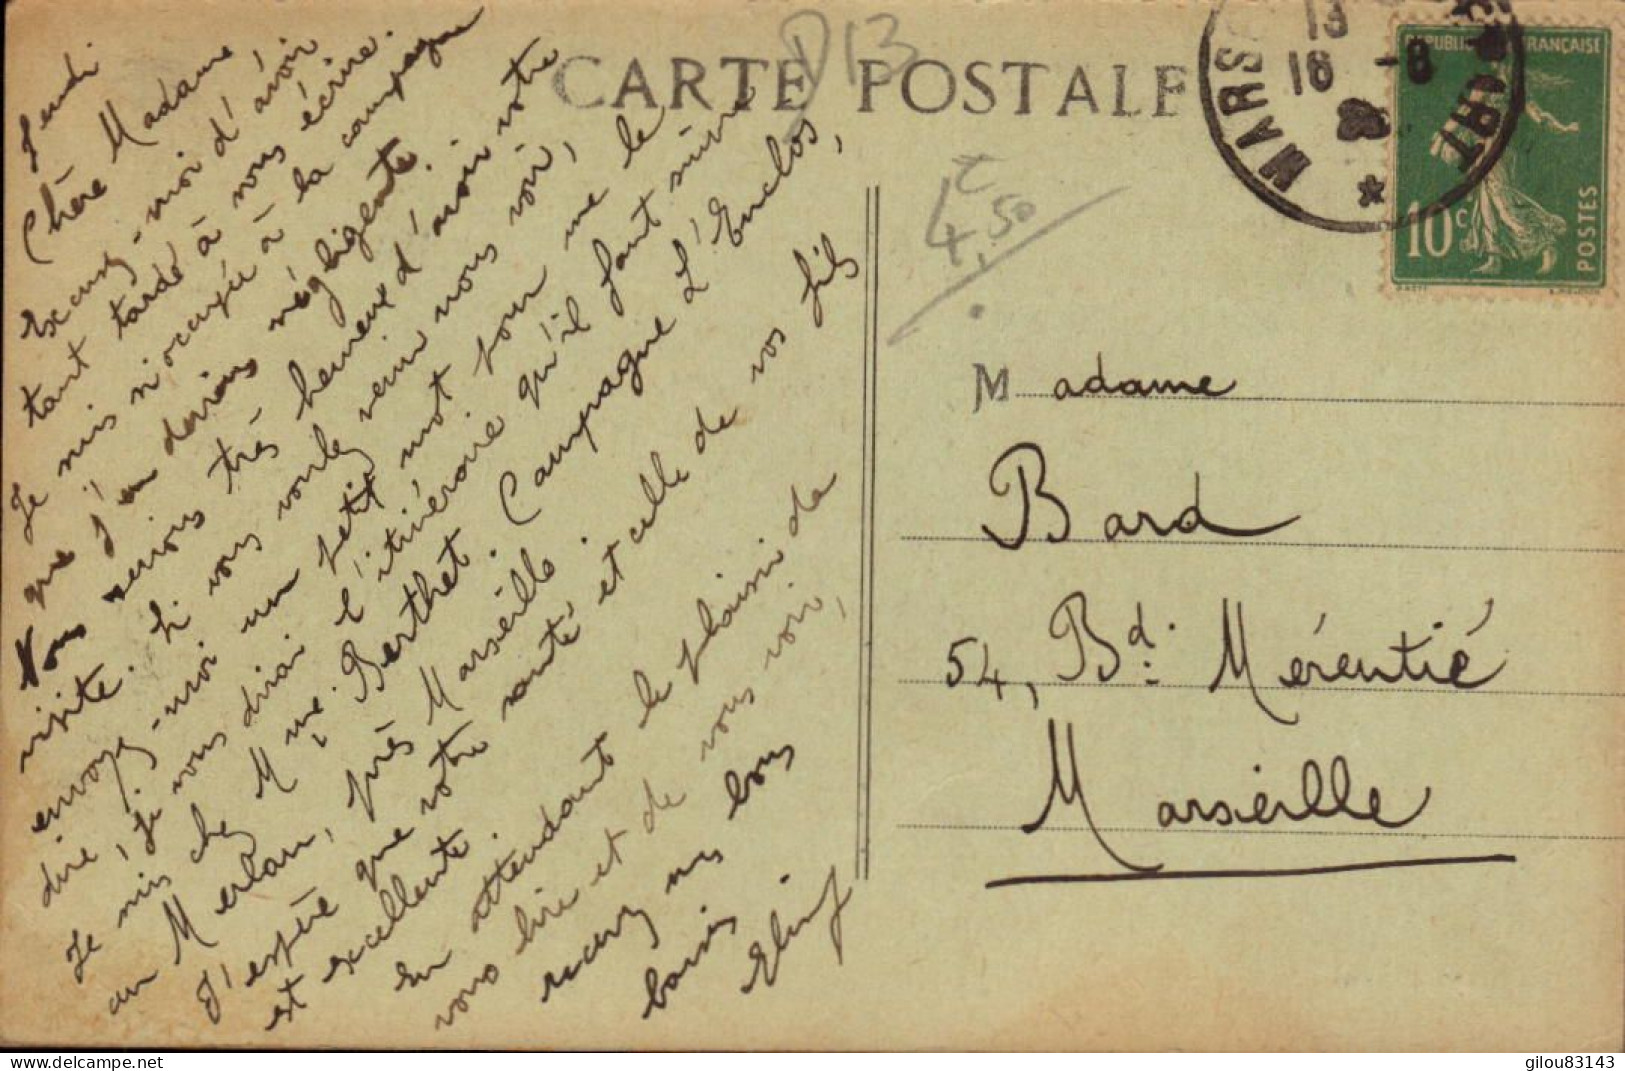 CARTE POSTALE
D13
4,50
MARS
13
18 -8
RÉPUBLIQUE FRANÇAISE
10c
POSTES
Jeudi
Chère Madame
Excusez-moi d'avoir
tant tardé à vous écrire.
Je suis si occupée à la campagne
que j'en deviens négligente.
Nous serions très heureux d'avoir votre
visite. Si vous voulez venir nous voir,
envoyez-moi un petit mot pour me le
dire, je vous dirai l'itinéraire qu'il faut suivre
Je suis chez Mme Berthet. Campagne L'Enclos,
au Merlan, près Marseille.
J'espère que votre santé et celle de vos fils
est excellente.
En attendant le plaisir de
vous lire et de vous voir,
recevez mes bons
baisers
Madame
Bard
54, Bd. Mérentié
Marseille
https://www.delcampe.net
gilou83143